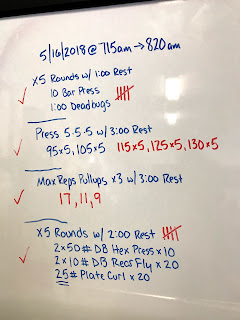 5/16/2018 @ 715am → 820am
x5 Rounds w/ 1:00 Rest
10 Bar Press
1:00 Deadbugs
Press 5.5.5 w/ 3:00 Rest
95x5, 105x5 115x5, 125x5, 130x5
Max Reps Pullups x3 w/ 3:00 Rest
17, 11, 9
x5 Rounds w/ 2:00 Rest
2x50# DB Hex Press x 10
2x10# DB Rear Fly x 20
25# Plate Curl x 20